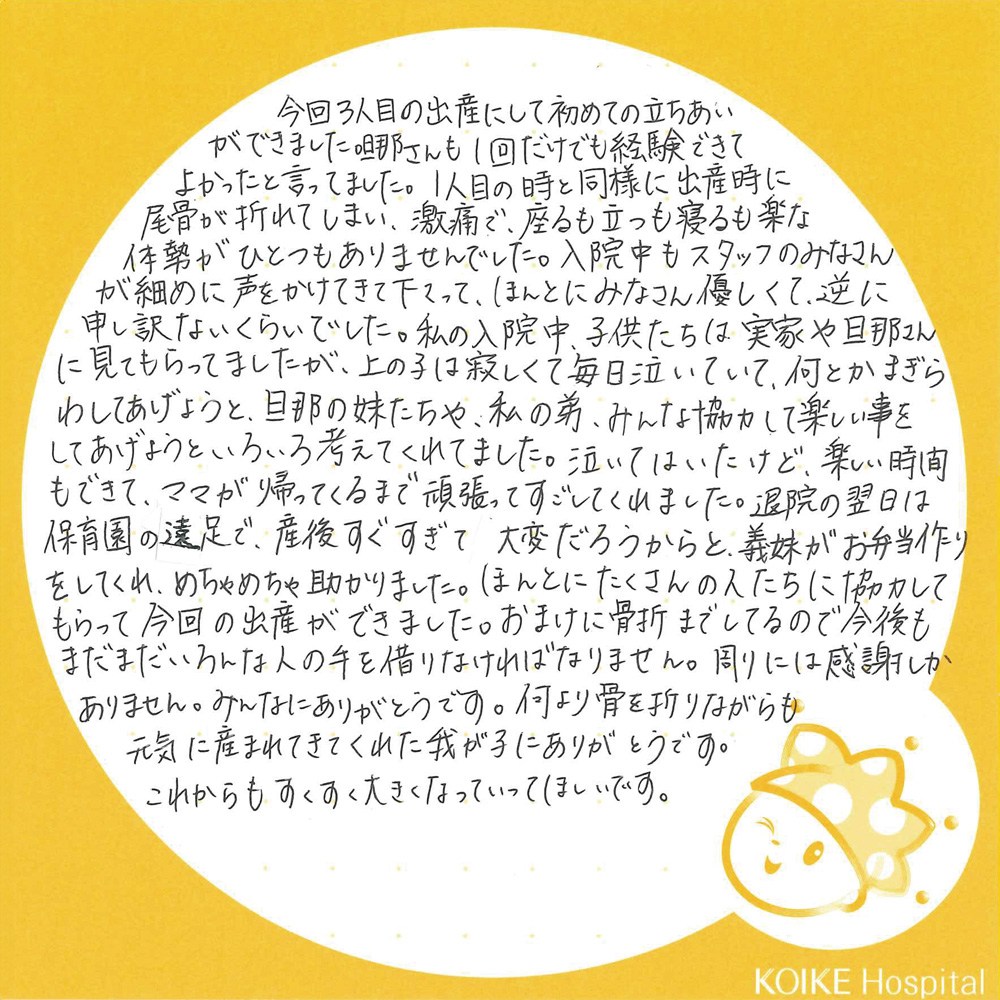 今回3人目の出産にして初めての立ちあい
ができました。旦那さんも1回だけでも経験できて
よかったと言ってました。1人目の時と同様に出産時に
尾骨が折れてしまい、激痛で、座るも立つも寝るも楽な
体勢がひとつもありませんでした。入院中もスタッフのみなさん
が細めに声をかけてきて下さって、ほんとにみなさん優しくて、逆に
申し訳ないくらいでした。私の入院中、子供たちは実家や旦那さん
に見てもらってましたが、上の子は寂しくて毎日泣いていて、何とかまぎら
わしてあげようと、旦那の妹たちや、私の弟、みんな協力して楽しい事を
してあげようといろいろ考えてくれてました。泣いてはいたけど、楽しい時間
もできて、ママが帰ってくるまで頑張ってすごしてくれました。退院の翌日は
保育園の遠足で、産後すぐすぎて 大変だろうからと、義妹がお弁当作り
をしてくれ、めちゃめちゃ助かりました。ほんとにたくさんの人たちに協力して
もらって今回の出産ができました。おまけに骨折までしてるので今後も
まだまだいろんな人の手を借りなければなりません。周りには感謝しか
ありません。みんなにありがとうです。何より骨を折りながらも
元気に産まれてきてくれた我が子にありがとうです。
これからもすくすく大きくなっていってほしいです。
KOIKE Hospital